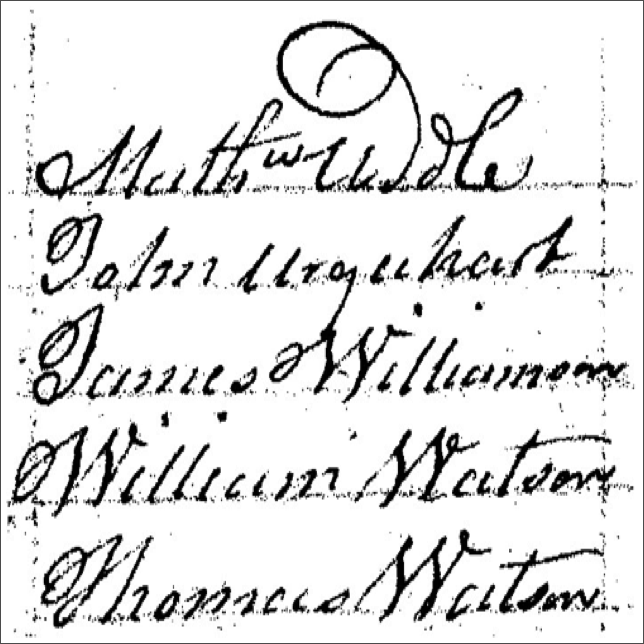 Mathw Uddle
John Urquhart
James Williamson
William Watson
Thomas Watson